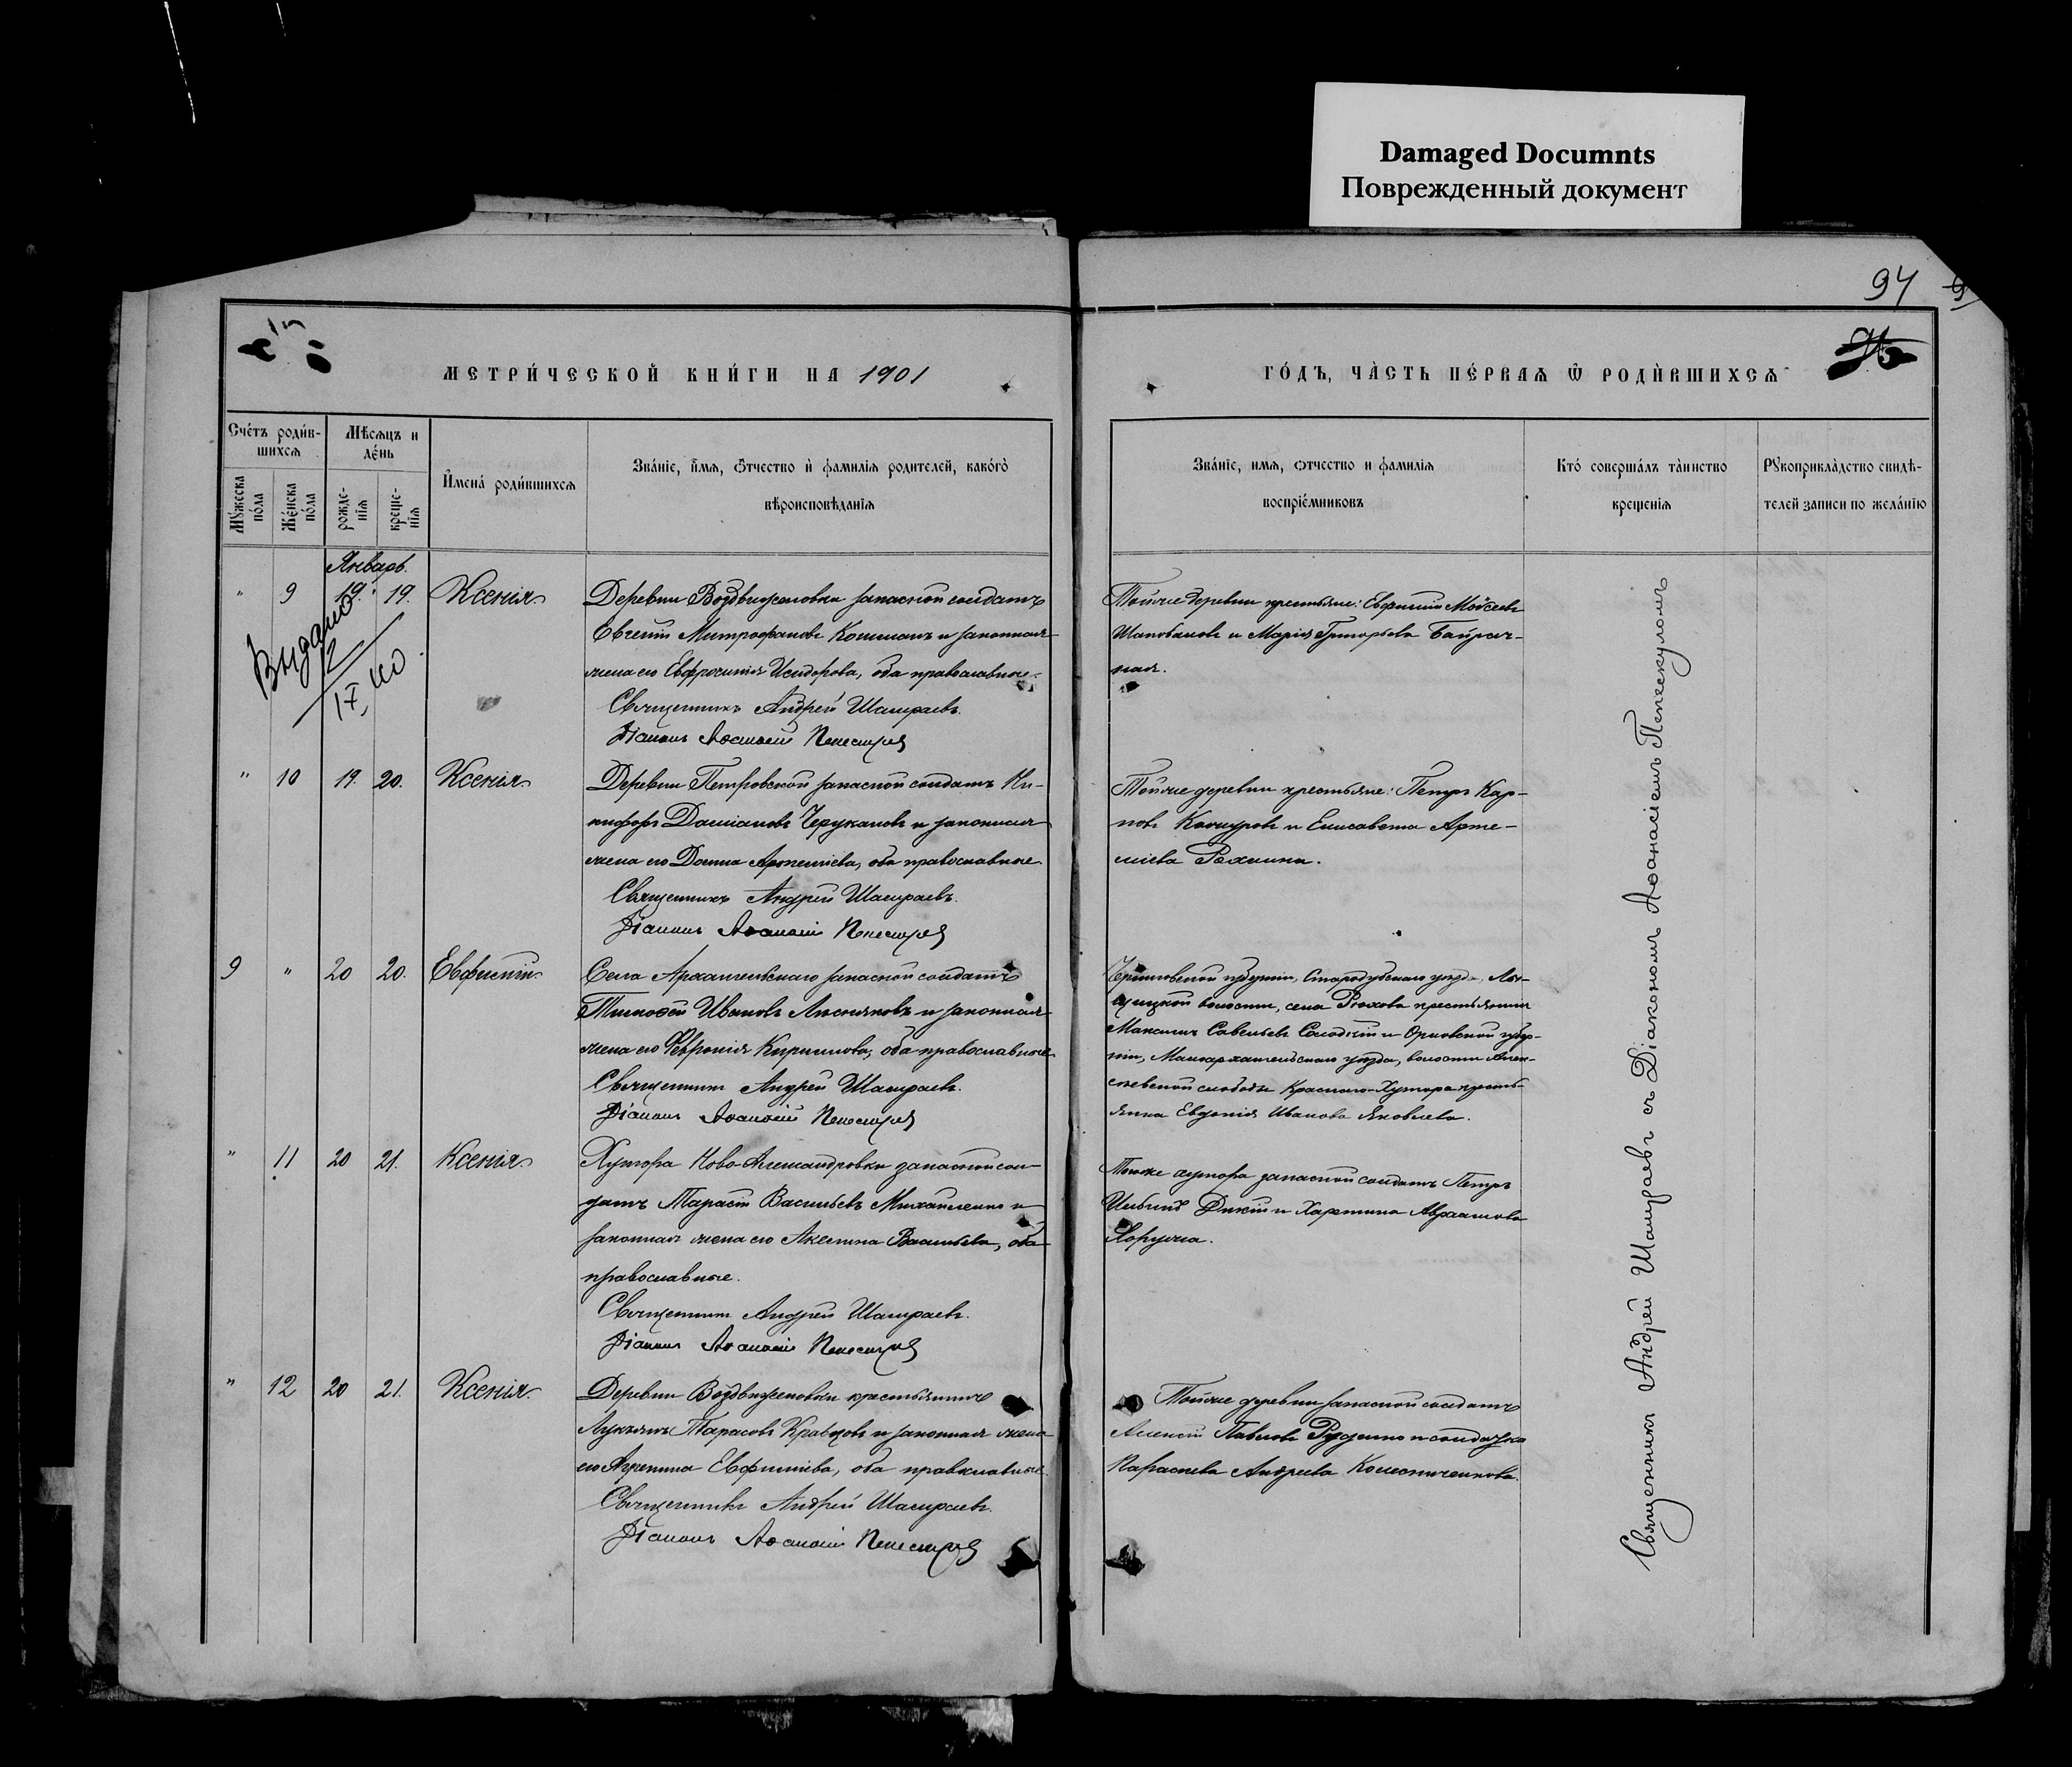 Damaged Documnts
Поврежденный документ
94
МЕТРИ́ЧЕСКОЙ КНИ́ГИ НА 1901
ГО́ДЪ, ЧА̀СТЬ ПЕ́РВАѦ Ѿ РОДЍВШИХСѦ
Сче́тъ роди́в-
шихсѧ
Мꙋ́жеска по́ла
Же́нска по́ла
Мѣ́сѧцъ и
де́нь
рожде-
нїѧ
креще-
нїѧ
И҆мена́ роди́вшихсѧ
Зва́нїе, и҆́мѧ, ѻ҆́тчество и҆ фамилїѧ родителей, како́гѡ
вѣроисповѣ́данїѧ
Зва́нїе, имѧ, ѻтчество и фамилїѧ
воспрїе́мниковъ
Кто́ соверша́лъ та̀инство
крещенїѧ
Рꙋкоприкла̀дство свидѣ́-
телей записи по жела́нїю
Январь.
" 9 19. 19. Ксенія
Выдано
12
IX, 40
Деревни Воздвиженовки запасной солдатъ
Евгеній Митрофановъ Кошманъ и законная
жена его Евфросинія Исидорова, оба православные.
Священникъ Андрей Шамраевъ.
Діаконъ Аѳанасій
Тойже деревни крестьяне: Евфимій Мойсеевъ
Шаповаловъ и Марія Григорьева Байрач-
ная.
" 10 19. 20. Ксенія
Деревни Петровской запасной солдатъ Ни-
кифоръ Даміановъ Черукановъ и законная
жена его Домна Артеміева, оба православные.
Священникъ Андрей Шамраевъ.
Діаконъ Аѳанасій
Тойже деревни крестьяне: Петръ Кар-
повъ и Елисавета Арте-
міева
9 " 20 20. Евфимій
Села Архангельскаго запасной солдатъ
Тимоѳей Ивановъ и законная
жена его Феѵронія Кириллова, оба православные.
Священникъ Андрей Шамраевъ.
Діаконъ Аѳанасій
Черниговской губерніи, Стародубскаго уѣзда,
волости, села Рюхова крестьянинъ
Максимъ Савельевъ Солодкій и Орловской губер-
ніи, Малоархангельскаго уѣзда, волости Алек-
сѣевской слободы Краснаго-Хутора кресть-
янка Евдокія Иванова Яковлева.
" 11 20 21. Ксенія
Хутора Ново-Александровки запасной сол-
датъ Тарасій Васильевъ Михайленко и
законная жена его Акелина Васильева, оба
православные.
Священникъ Андрей Шамраевъ.
Діаконъ Аѳанасій
Тогоже хутора запасной солдатъ Петръ
Дикій и Харитина Авраамова
" 12 20 21. Ксенія
Деревни Воздвиженовки крестьянинъ
Лукьянъ Тарасовъ Кравцовъ и законная жена
его Агрепина Евфиміева, оба православные.
Священникъ Андрей Шамраевъ.
Діаконъ Аѳанасій
Тойже деревни запасной солдатъ
Алексій Павловъ Руденко и солдатка
Параскева Андреева Колесниченкова.
Священникъ Андрей Шамраевъ съ Діакономъ Аѳанасіемъ Пенескуломъ